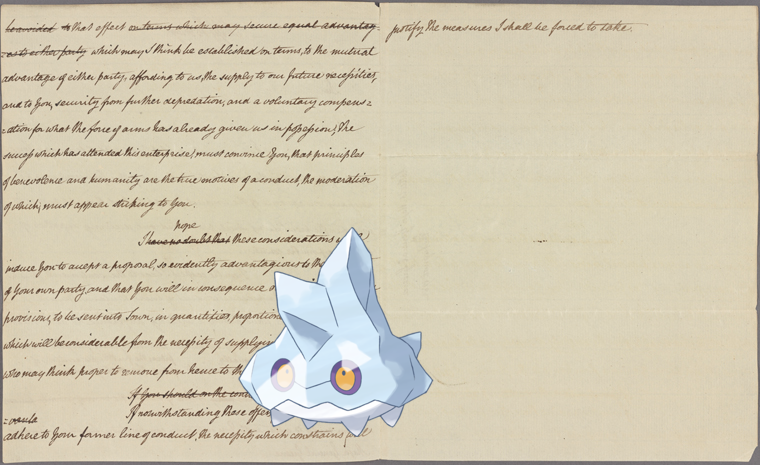 be avoided to that effect on terms which may secure equal advantag-
-es to either party which may I think be established on terms, to the mutual
advantage of either party, affording to us, the supply to our future necessities,
and to You, security from further depredation, and a voluntary compens=
=ation for what the force of arms has already given us in possession; The
success which has attended this enterprise, must convince You, that principles
of benevolence and humanity are the true motives of a conduct, the moderation
of which, must appear striking to You.
hope
I have no doubt that these considerations
induce You to accept a proposal, so evidently advantageous to
of Your own party, and that You will in consequence
provisions, to be sent into Town, in quantities
which will be considerable from the necessity of supplying
who may think proper to remove from hence to
If You should on the
If notwithstanding these
adhere to Your former line of conduct, the necessity which constrains
justify the measures I shall be forced to take.